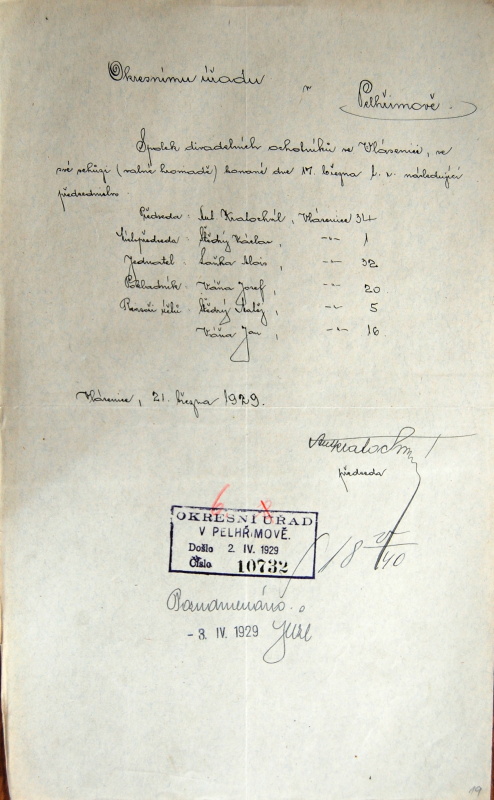 Okresnímu úřadu
v
Pelhřimově.
Spolek divadelních ochotníků ve Vlásenici, ve
své schůzi (valné hromadě) konané dne 17. března t. r. následující
předsednictvo
Předseda: Ant. Kratochvíl, Vlásenice 34
Místopředseda: Štědrý Václav, -"- 1
Jednatel: Laňka Alois, -"- 32
Pokladník: Váňa Josef, -"- 20
Revisoři účtů: Štědrý Matěj, -"- 5
Váňa Jan, -"- 16
Vlásenice, 21. března 1929.
Ant Kratochvíl
předseda
OKRESNÍ ÚŘAD
V PELHŘIMOVĚ.
Došlo 2. IV. 1929
Číslo 10732
18
40
Poznamenáno.
- 3. IV. 1929
19